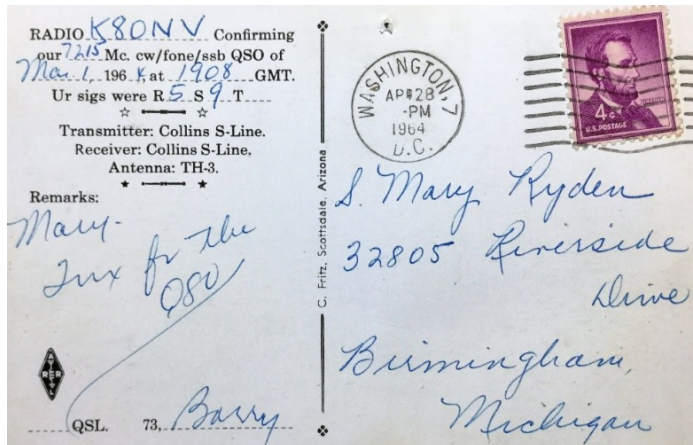 RADIO K8ONV Confirming
our 7215 Mc. cw/fone/ssb QSO of
Mar 1, 1964 at 1908 GMT.
Ur sigs were R 5 S 9 T
Transmitter: Collins S-Line.
Receiver: Collins S-Line,
Antenna: TH-3.
Remarks:
Mary-
Tnx for the
QSO
ARRL
QSL. 73, Barry
C. Fritz, Scottsdale, Arizona
WASHINGTON, 7
APR 28
-PM
1964
D.C.
LINCOLN
4¢
U.S. POSTAGE
S. Mary Ryden
32805 Riverside
Drive
Birmingham,
Michigan